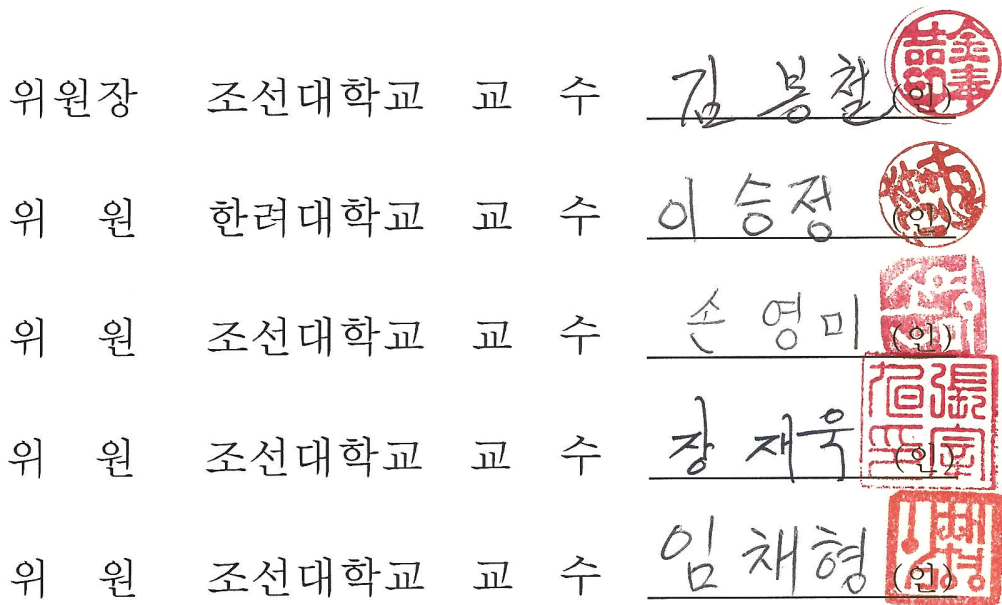 위원장 조선대학교 교 수 김 봉 철 (인)
위 원 한려대학교 교 수 이 승 정 (인)
위 원 조선대학교 교 수 손 영 미 (인)
위 원 조선대학교 교 수 장 재 욱 (인)
위 원 조선대학교 교 수 임 채 형 (인)